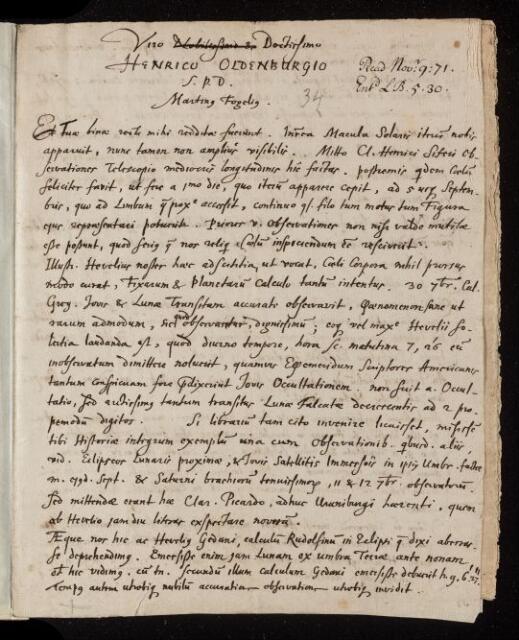 Viro Nobilissimo & Doctissimo
HENRICO OLDENBURGIO
S. P. D.
Martinus Fogelius
Read Nov: 9: 71.
Ent^d L.B. 5. 30.
34
Et Tuæ binæ recte mihi redditæ fuerunt. Macula Solaris iterum nobis
apparuit, nunc tamen non amplius visibilis. Mitto Cl. Henrici Siferi Ob-
servationes Telescopio mediocris longitudinis hic factas. postremis Cœlum
feliciter favit, ut fere a die, quo iterum apparere cepit, ad 5 usq Septem-
bris, quo ad Limbum accessit, continuo filo tum motus tum Figura
ejus repræsentari potuerit. Priores v. Observationes non nisi valde mutilæ
esse potunt, quod serius nos Cœlum inspiciendum esse
Illustr. Hevelius noster hæc adscititia, ut vocat, Cœli Corpora nihil prorsus
modo curat, Fixarum & Planetarum Calculo tantum intentus. 30 7br. Cal.
Greg. Jovis & Lunæ Transitum accurate observavit, Phænomenon sane ut
rarum admodum, sic observatu, dignissimum; vel maxe Hevelii So-
lertia laudanda est, quod diurno tempore, hora sc. matutina 7, 26 eum
inobservatum dimittere noluerit, quamvis Ephemeridum Scriptores Americanis
tantum conspicuam fore prædixerint Jovis Occultationem. non fuit a. Occul-
tatio, sed arctissimus tantum transitus Lunæ Falcatæ decrescentis ad 2 pro-
pemodum digitos. Si librarium tam cito invenire licuisset, misissem
tibi Historiæ integrum exemplum una cum Observationib. quibusd. aliis,
vid. Eclipseos Lunaris proximæ, & Jovis Satellitis Immersus in ipsius Umbr. factæ
m. ejusd. Sept. & Saturni brachiorum tenuissimorum, 11 & 12 7br. observatorum.
Sed mittendæ erant hæ Clar. Picardo, adhuc Uraniburgi hærenti, quem
ab Hevelio jam diu literas exspectare noveram.
Æque nos hic ac Hevelius Gedani, calculum Rudolfinum in Eclipsi q dixi aberras-
se deprehendimus. Emersisse enim jam Lunam ex umbra Terræ ante nonam
et hic vidimus, cum tn. secundum illum calculum Gedani emersisse debuerit h. 9. 6' 37."
Tempus autem utrobiq nubilum accuratiorem observationem utrobiq invidit.